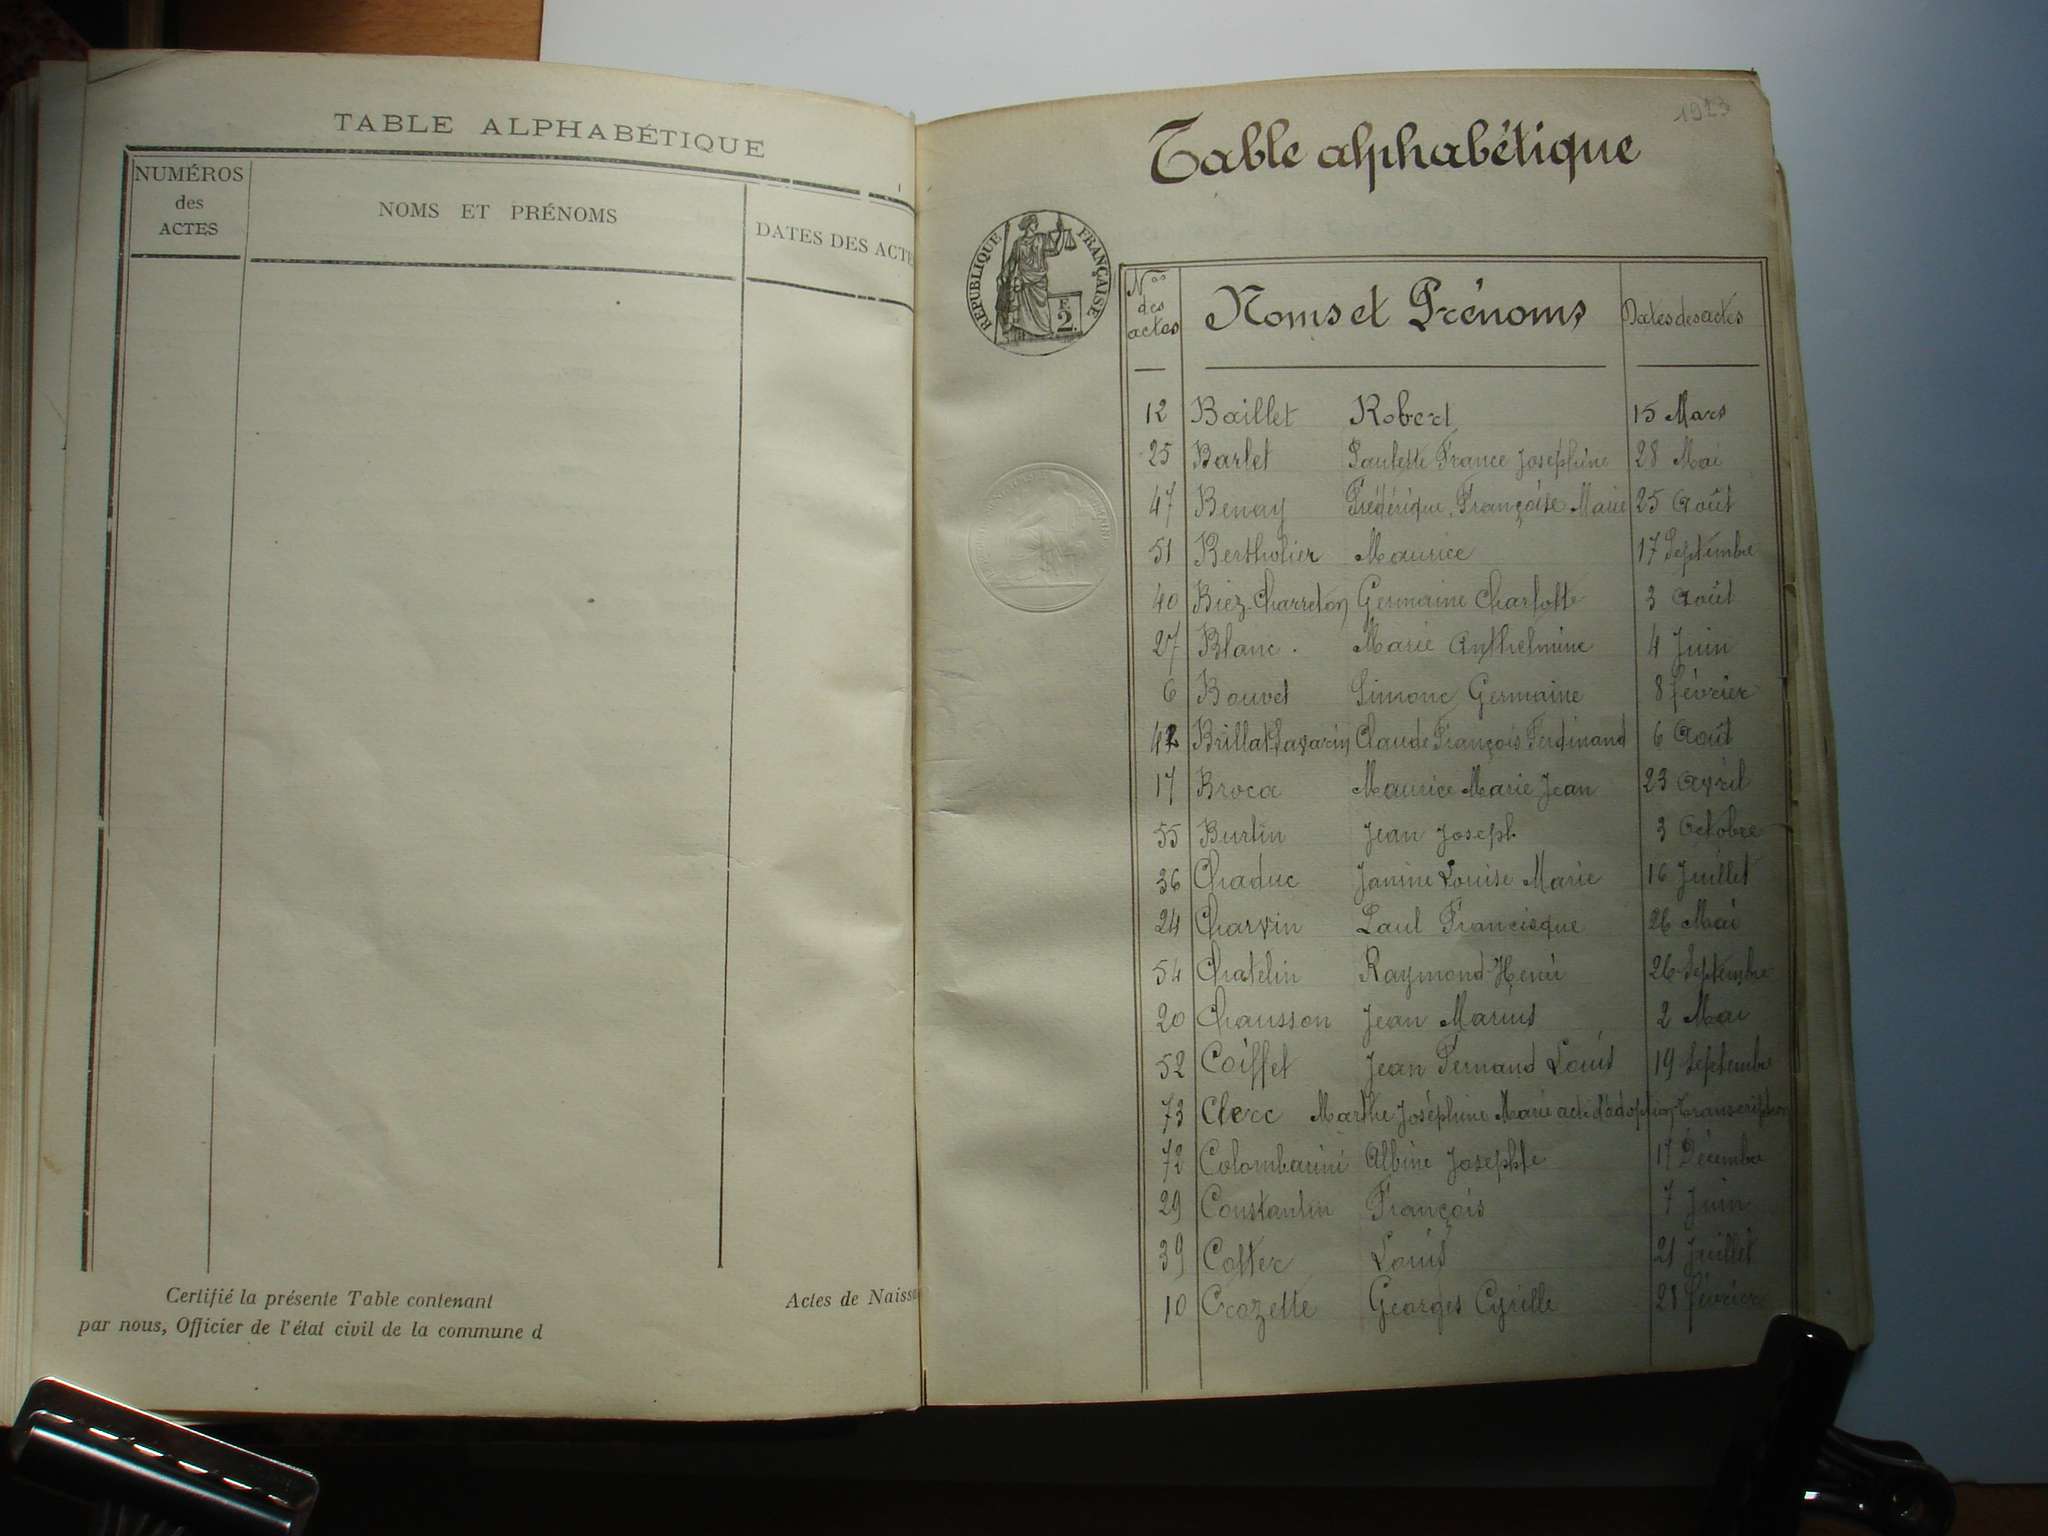 TABLE ALPHABÉTIQUE
NUMÉROS
des
ACTES
NOMS ET PRÉNOMS
DATES DES ACTE
Certifié la présente Table contenant
Actes de Naiss
par nous, Officier de l'état civil de la commune d
1923
Table alphabétique
RÉPUBLIQUE FRANÇAISE
F.
2.
Nos
des
actes
Noms et Prénoms
Dates des actes
12 Baillet Robert 15 Mars
25 Barlet Paulette France Josephine 28 Mai
47 Benay Frédérique Françoise Marie 25 Août
51 Bertholier Maurice 17 Septembre
40 Biez-Charreton Germaine Charlotte 3 Août
27 Blanc Marie Anthelmine 4 Juin
6 Bouvet Simone Germaine 8 février
42 Brillat-Savarin Claude François Ferdinand 6 Août
17 Broca Maurice Marie Jean 23 Avril
55 Burtin Jean Joseph 3 Octobre
36 Chaduc Janine Louise Marie 16 Juillet
24 Charvin Paul Francisque 26 Mai
54 Chatelin Raymond Henri 26 Septembre
20 Chausson Jean Marius 2 Mai
52 Coiffet Jean Fernand Louis 19 Septembre
73 Clerc Marthe Joséphine Marie acte d'adoption, transcription
72 Colombarini Albine Josephte 17 Décembre
29 Constantin François 7 Juin
39 Cottec Louis 21 Juillet
10 Crozette Georges Cyrille 28 février